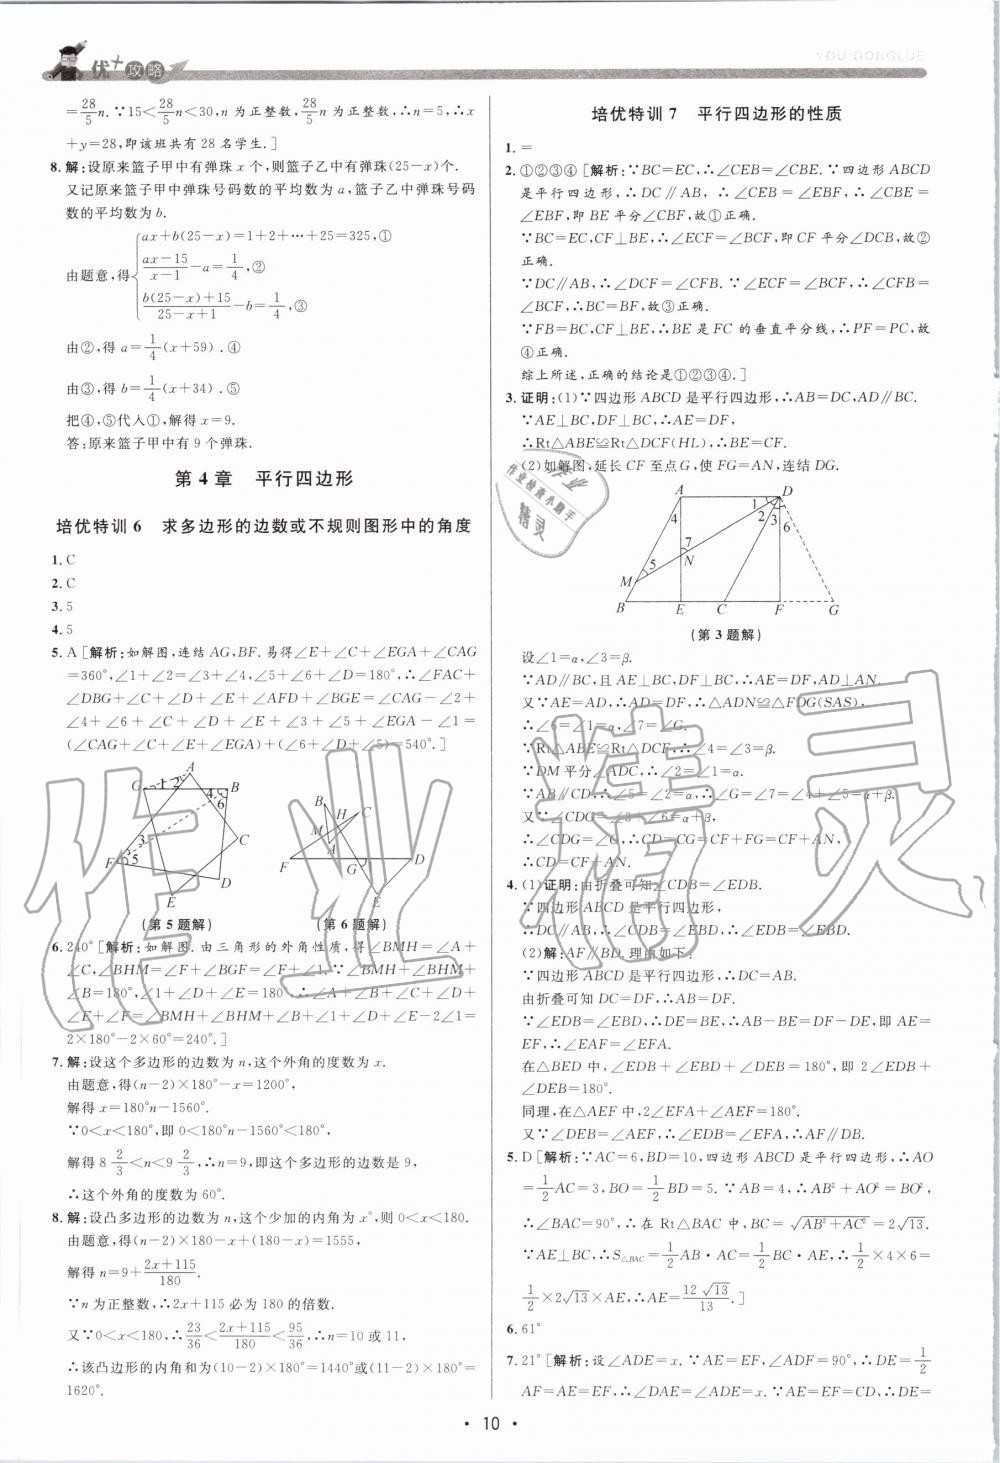 优+攻略
YOU+GONGLUE
=28/5 n. ∵15<28/5 n<30,n 为正整数,28/5 n 为正整数,∴n=5,∴x
+y=28,即该班共有 28 名学生.]
8. 解:设原来篮子甲中有弹珠 x 个,则篮子乙中有弹珠(25-x)个.
又记原来篮子甲中弹珠号码数的平均数为 a,篮子乙中弹珠号码
数的平均数为 b.
由题意,得
ax+b(25-x)=1+2+…+25=325,①
(ax-15)/(x-1)-a=1/4,②
(b(25-x)+15)/(25-x+1)-b=1/4,③
由②,得 a=1/4(x+59).④
由③,得 b=1/4(x+34).⑤
把④,⑤代入①,解得 x=9.
答:原来篮子甲中有 9 个弹珠.
第 4 章 平行四边形
培优特训 6 求多边形的边数或不规则图形中的角度
1. C
2. C
3. 5
4. 5
5. A [解析:如解图,连结 AG,BF. 易得∠E+∠C+∠EGA+∠CAG
=360°,∠1+∠2=∠3+∠4,∠5+∠6+∠D=180°,∴∠FAC+
∠DBG+∠C+∠D+∠E+∠AFD+∠BGE=∠CAG-∠2+
∠4+∠6+∠C+∠D+∠E+∠3+∠5+∠EGA-∠1=
(∠CAG+∠C+∠E+∠EGA)+(∠6+∠D+∠5)=540°.]
G 1 2 A 4 B 6 3 C F 5 D E
B H C M A F G D 1 E
(第 5 题解) (第 6 题解)
6. 240° [解析:如解图. 由三角形的外角性质,得∠BMH=∠A+
∠C,∠BHM=∠F+∠BGF=∠F+∠1. ∵∠BMH+∠BHM+
∠B=180°,∠1+∠D+∠E=180°,∴∠A+∠B+∠C+∠D+
∠E+∠F=∠BMH+∠BHM+∠B+∠1+∠D+∠E-2∠1=
2×180°-2×60°=240°.]
7. 解:设这个多边形的边数为 n,这个外角的度数为 x.
由题意,得(n-2)×180°-x=1200°,
解得 x=180°n-1560°.
∵0<x<180°,即 0<180°n-1560°<180°,
解得 8 2/3<n<9 2/3,∴n=9,即这个多边形的边数是 9,
∴这个外角的度数为 60°.
8. 解:设凸多边形的边数为 n,这个少加的内角为 x°,则 0<x<180.
由题意,得(n-2)×180-x+(180-x)=1555,
解得 n=9+(2x+115)/180.
∵n 为正整数,∴2x+115 必为 180 的倍数.
又∵0<x<180,∴23/36<(2x+115)/180<95/36,∴n=10 或 11,
∴该凸边形的内角和为(10-2)×180°=1440°或(11-2)×180°=
1620°.
培优特训 7 平行四边形的性质
1. =
2. ①②③④ [解析:∵BC=EC,∴∠CEB=∠CBE. ∵四边形 ABCD
是平行四边形,∴DC∥AB,∴∠CEB=∠EBF,∴∠CBE=
∠EBF,即 BE 平分∠CBF,故①正确.
∵BC=EC,CF⊥BE,∴∠ECF=∠BCF,即 CF 平分∠DCB,故②
正确.
∵DC∥AB,∴∠DCF=∠CFB. ∵∠ECF=∠BCF,∴∠CFB=
∠BCF,∴BC=BF,故③正确.
∵FB=BC,CF⊥BE,∴BE 是 FC 的垂直平分线,∴PF=PC,故
④正确.
综上所述,正确的结论是①②③④.]
3. 证明:(1)∵四边形 ABCD 是平行四边形,∴AB=DC,AD∥BC.
∵AE⊥BC,DF⊥BC,∴AE=DF,
∴Rt△ABE≌Rt△DCF(HL),∴BE=CF.
(2)如解图,延长 CF 至点 G,使 FG=AN,连结 DG.
A D 1 2 3 6 4 7 N M 5 B E C F G
(第 3 题解)
设∠1=α,∠3=β.
∵AD∥BC,且 AE⊥BC,DF⊥BC,∴AE=DF,AD⊥AN.
又∵AE=AD,∴AD=DF,∴△ADN≌△FDG(SAS),
∴∠6=∠1=α,∠7=∠G.
∵Rt△ABE≌Rt△DCF,∴∠4=∠3=β.
∵DM 平分∠ADC,∴∠2=∠1=α.
∵AB∥CD,∴∠5=∠2=α,∴∠G=∠7=∠4+∠5=α+β.
又∵∠CDG=∠3+∠6=α+β,
∴∠CDG=∠G,∴CD=CG=CF+FG=CF+AN,
∴CD=CF+AN.
4. (1)证明:由折叠可知∠CDB=∠EDB.
∵四边形 ABCD 是平行四边形,
∴DC∥AB,∴∠CDB=∠EBD,∴∠EDB=∠EBD.
(2)解:AF∥BD. 理由如下:
∵四边形 ABCD 是平行四边形,∴DC=AB.
由折叠可知 DC=DF,∴AB=DF.
∵∠EDB=∠EBD,∴DE=BE,∴AB-BE=DF-DE,即 AE=
EF,∴∠EAF=∠EFA.
在△BED 中,∠EDB+∠EBD+∠DEB=180°,即 2∠EDB+
∠DEB=180°.
同理,在△AEF 中,2∠EFA+∠AEF=180°.
又∵∠DEB=∠AEF,∴∠EDB=∠EFA,∴AF∥DB.
5. D [解析:∵AC=6,BD=10,四边形 ABCD 是平行四边形,∴AO
=1/2 AC=3,BO=1/2 BD=5. ∵AB=4,∴AB²+AO²=BO²,
∴∠BAC=90°,∴在 Rt△BAC 中,BC=√(AB²+AC²)=2√13.
∵AE⊥BC,∴S△BAC=1/2 AB·AC=1/2 BC·AE,∴1/2×4×6=
1/2×2√13×AE,∴AE=12√13/13.]
6. 61°
7. 21° [解析:设∠ADE=x. ∵AE=EF,∠ADF=90°,∴DE=1/2
AF=AE=EF,∴∠DAE=∠ADE=x. ∵AE=EF=CD,∴DE=
·10·
作业检查小助手
精灵
作业精灵